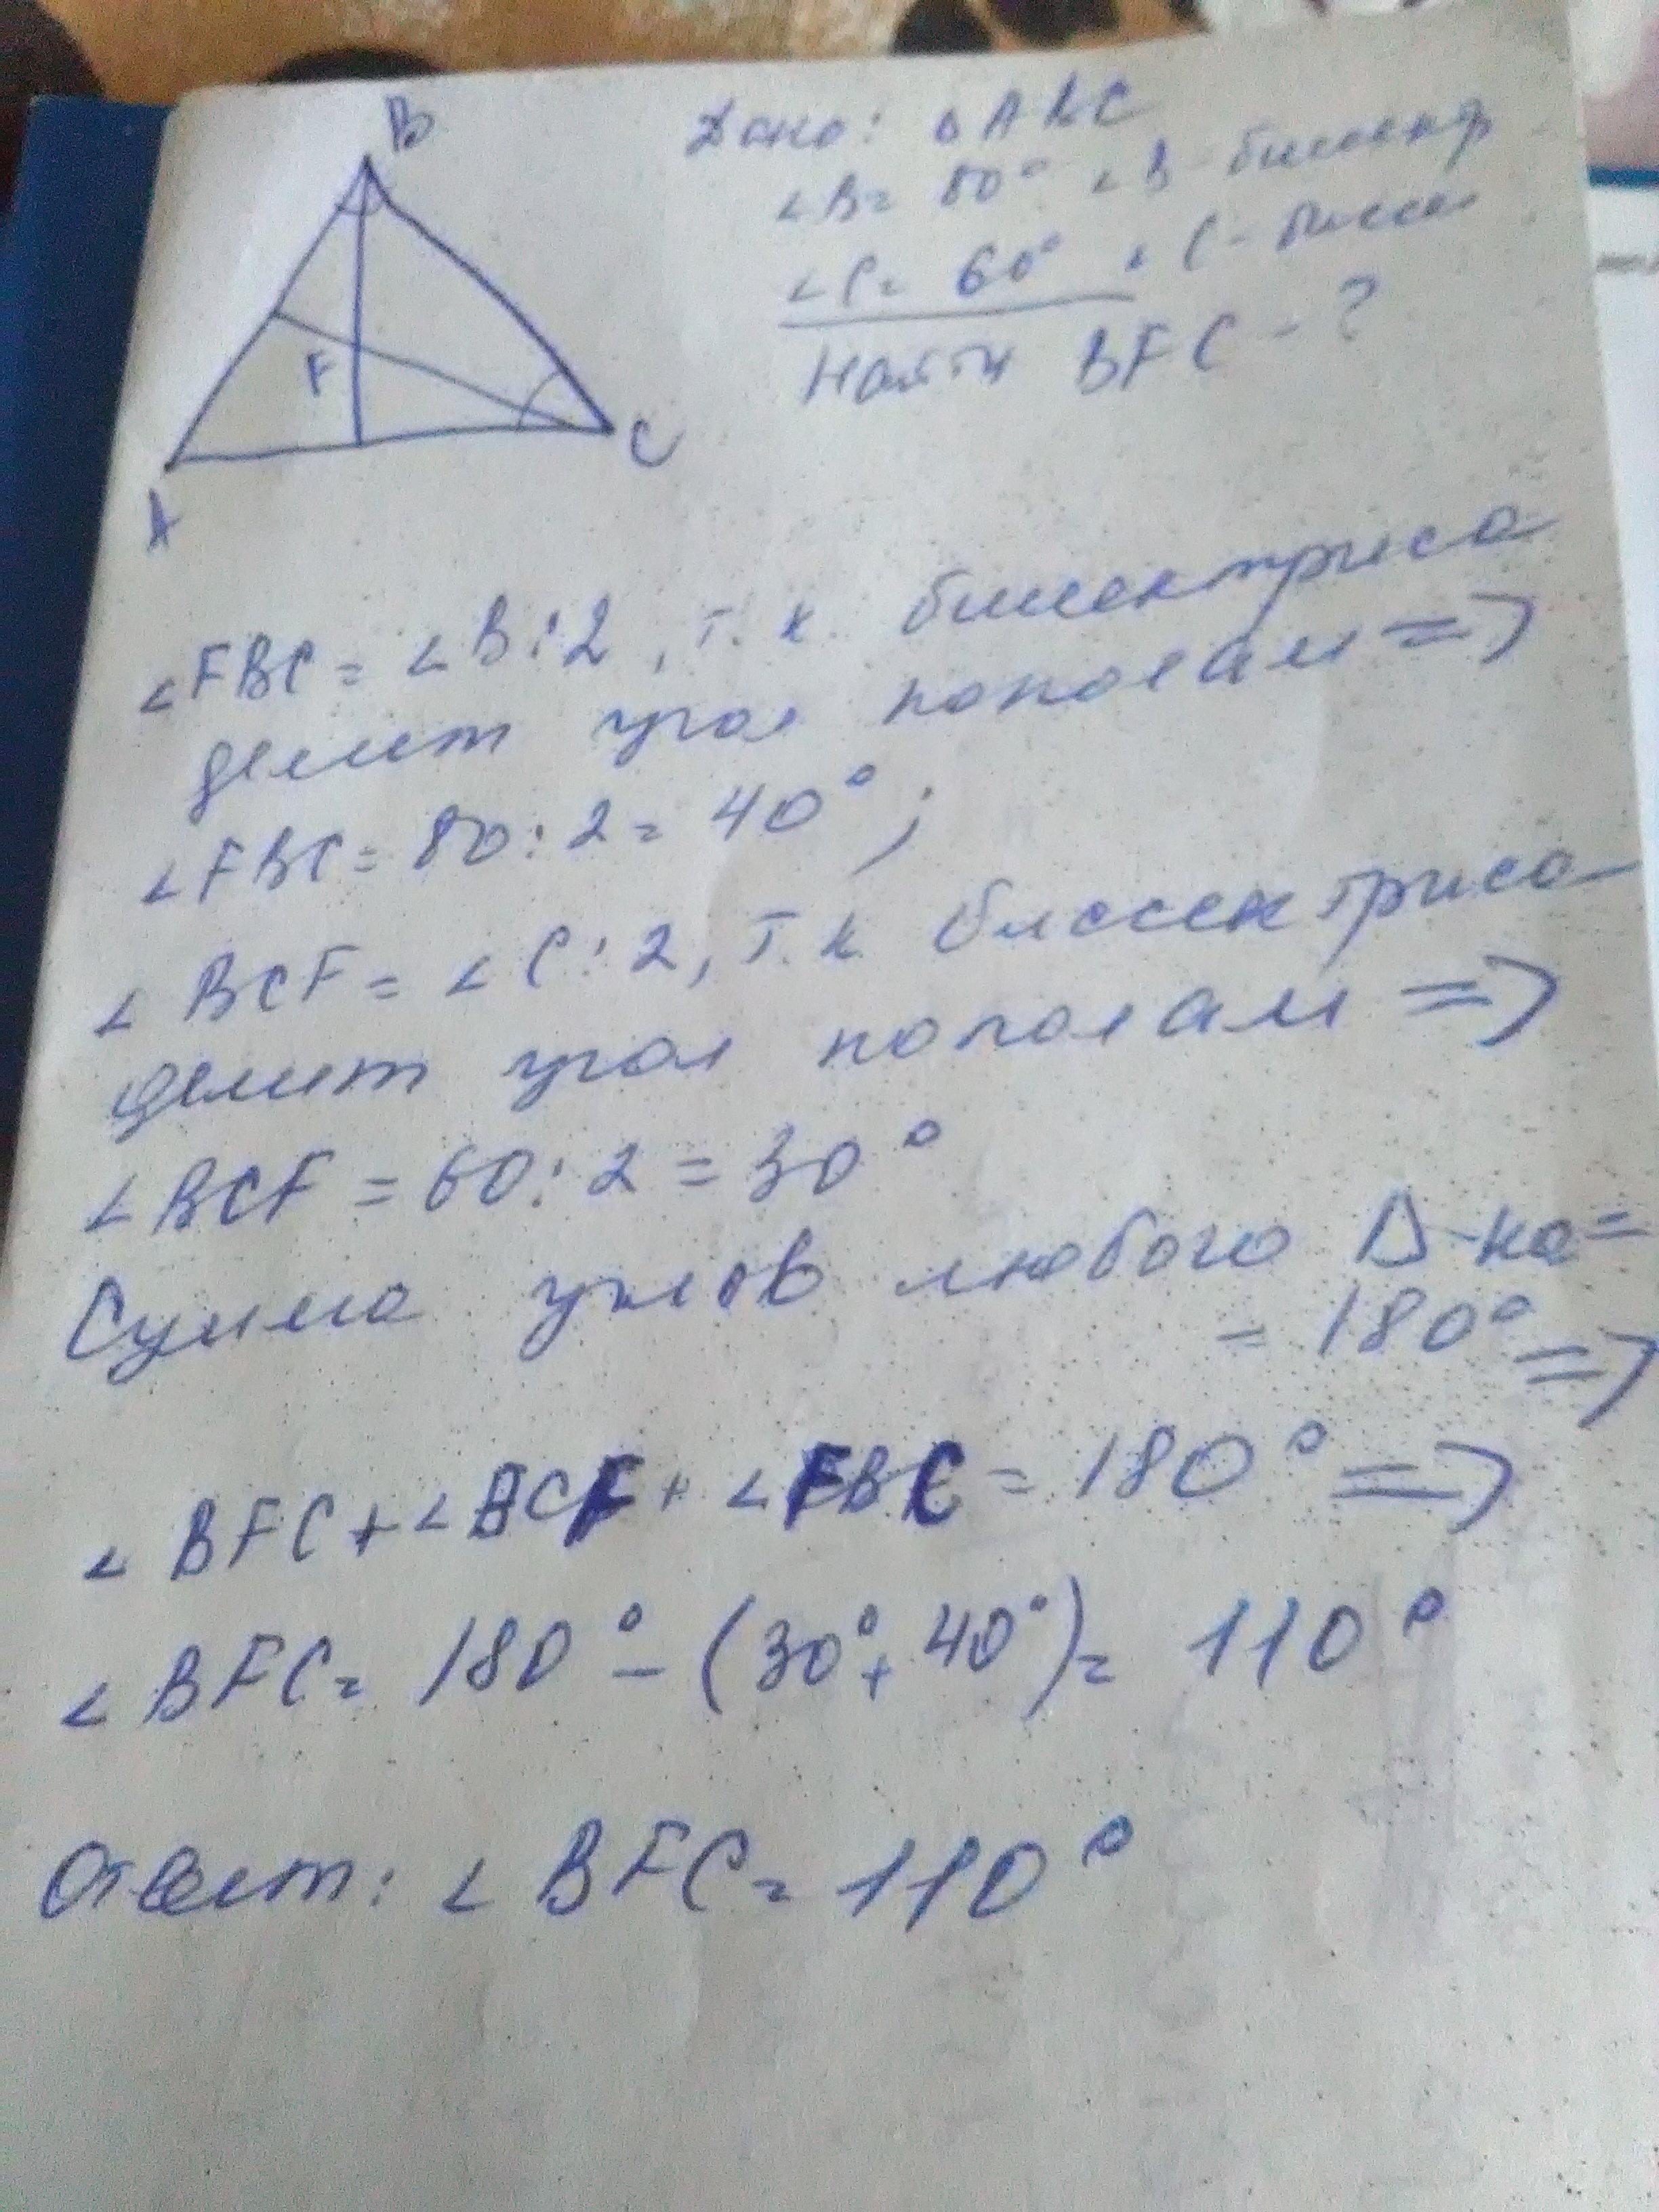 B
F
A
C
Дано: △ABC
∠B= 80° ∠B-биссектр
∠C= 60° ∠C-биссек
Найти BFC-?
∠FBC= ∠B:2, т.к. биссектриса
делит угол пополам =>
∠FBC= 80:2= 40°;
∠BCF= ∠C:2, т.к. биссектриса
делит угол пополам =>
∠BCF = 60:2 = 30°
Сумма углов любого △-ка=
= 180° =>
∠BFC+∠BCF+∠FBC= 180° =>
∠BFC= 180°-(30°+40°)= 110°
Ответ: ∠BFC= 110°